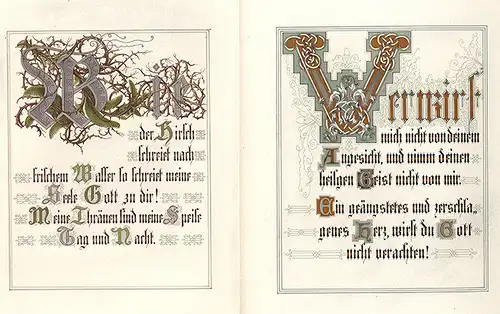 Wie
der Hirsch
schreiet nach
frischem Wasser so schreiet meine
Seele Gott zu dir!
Meine Thränen sind meine Speise
Tag und Nacht.
Verwirf
mich nicht von deinem
Angesicht, und nimm deinen
heilgen Geist nicht von mir.
Ein geängstetes und zerschla
genes Herz, wirst du Gott
nicht verachten!